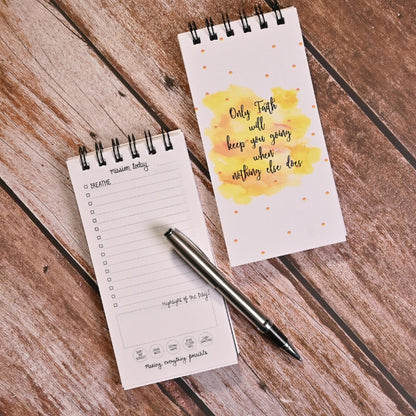 Only Faith
will
keep you going
when
nothing else does
mission today
BREATHE
Highlight of the Day!
Making everything possible